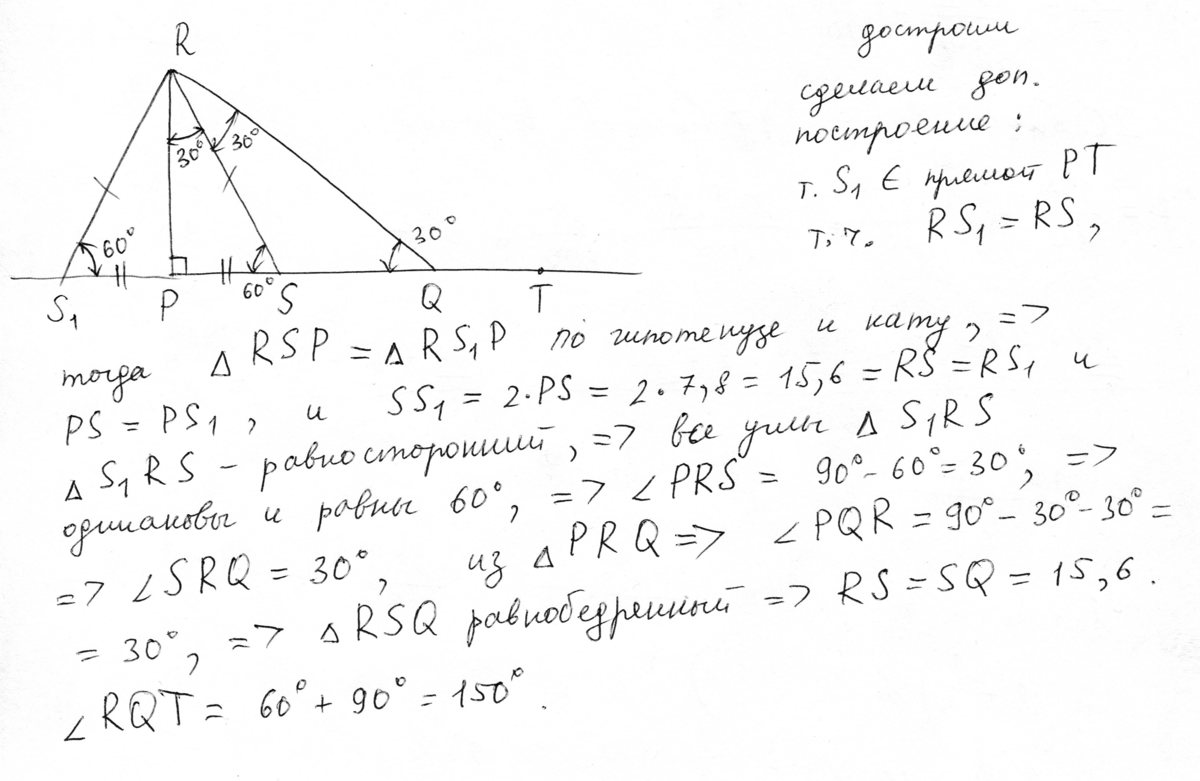 R
30°
30°
60°
30°
60°
S₁
P
S
Q
T
достроим
сделаем доп.
построение:
т. S₁ ∈ прямой PT
т.ч. RS₁ = RS,
тогда △ RSP = △ RS₁P по гипотенузе и кату, =>
PS = PS₁, и SS₁ = 2·PS = 2·7,8 = 15,6 = RS = RS₁ и
△ S₁RS – равносторонний, => все углы △ S₁RS
одинаковы и равны 60°, => ∠PRS = 90°–60°=30°, =>
=> ∠SRQ = 30°, из △ PRQ => ∠PQR = 90°–30°–30° =
= 30°, => △ RSQ равнобедренный => RS = SQ = 15,6.
∠RQT = 60° + 90° = 150°.